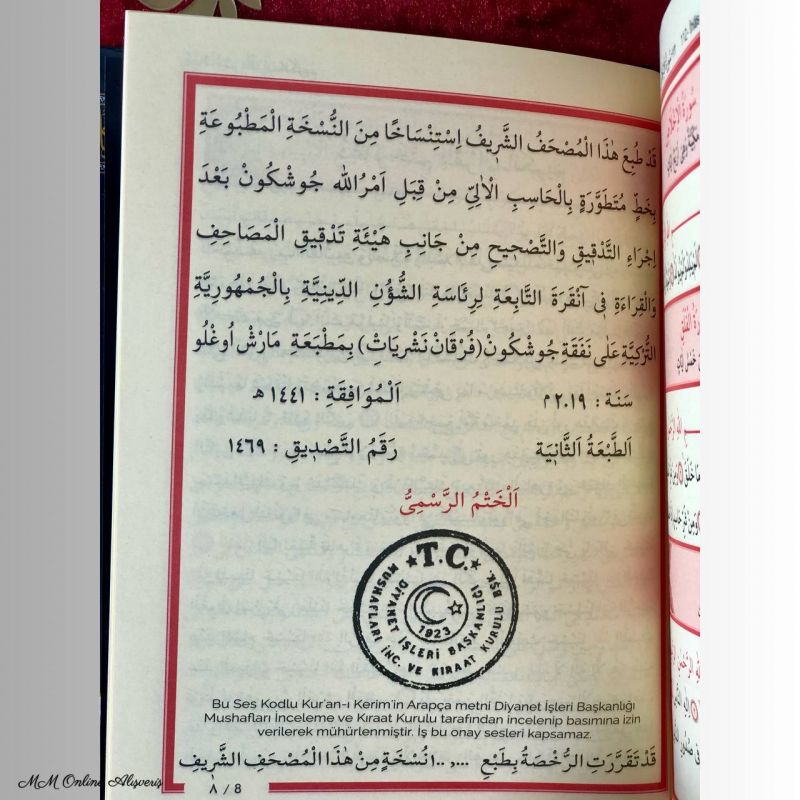 قَدْ طُبِعَ هٰذَا الْمُصْحَفُ الشَّرِيفُ اِسْتِنْسَاخًا مِنَ النُّسْخَةِ الْمَطْبُوعَةِ
بِخَطٍّ مُتَطَوَّرَةٍ بِالْحَاسِبِ الْاٰلِيِّ مِنْ قِبَلِ اَمْرُ الله جُوشْكُونْ بَعْدَ
اِجْرَاءِ التَّدْقِيقِ وَالتَّصْحِيحِ مِنْ جَانِبِ هَيْئَةِ تَدْقِيقِ الْمَصَاحِفِ
وَالْقِرَاءَةِ فِى اَنْقَرَةَ التَّابِعَةِ لِرِئَاسَةِ الشُّؤُنِ الدِّينِيَّةِ بِالْجُمْهُورِيَّةِ
التُّرْكِيَّةِ عَلٰى نَفَقَةِ جُوشْكُونْ (فُرْقَانْ نَشْرِيَاتْ) بِمَطْبَعَةِ مَارْشْ اُوغْلُو
سَنَة : ٢٠١٩ م اَلْمُوَافِقَةِ : ١٤٤١ ه
اَلطَّبْعَةُ الثَّانِيَة رَقَمُ التَّصْدِيقِ : ١٤٦٩
اَلْخَتْمُ الرَّسْمِىُّ
T.C.
DİYANET İŞLERİ BAŞKANLIĞI
MUSHAFLARI İNC. VE KIRAAT KURULU BŞK.
1923
Bu Ses Kodlu Kur'an-ı Kerim'in Arapça metni Diyanet İşleri Başkanlığı
Mushafları İnceleme ve Kıraat Kurulu tarafından incelenip basımına izin
verilerek mühürlenmiştir. İş bu onay sesleri kapsamaz.
قَدْ تَقَرَّرَتِ الرُّخْصَةُ بِطَبْعِ ...,..١ نُسْخَةٍ مِنْ هٰذَا الْمُصْحَفِ الشَّرِيفِ
٨ / 8
MM Online Alışveriş